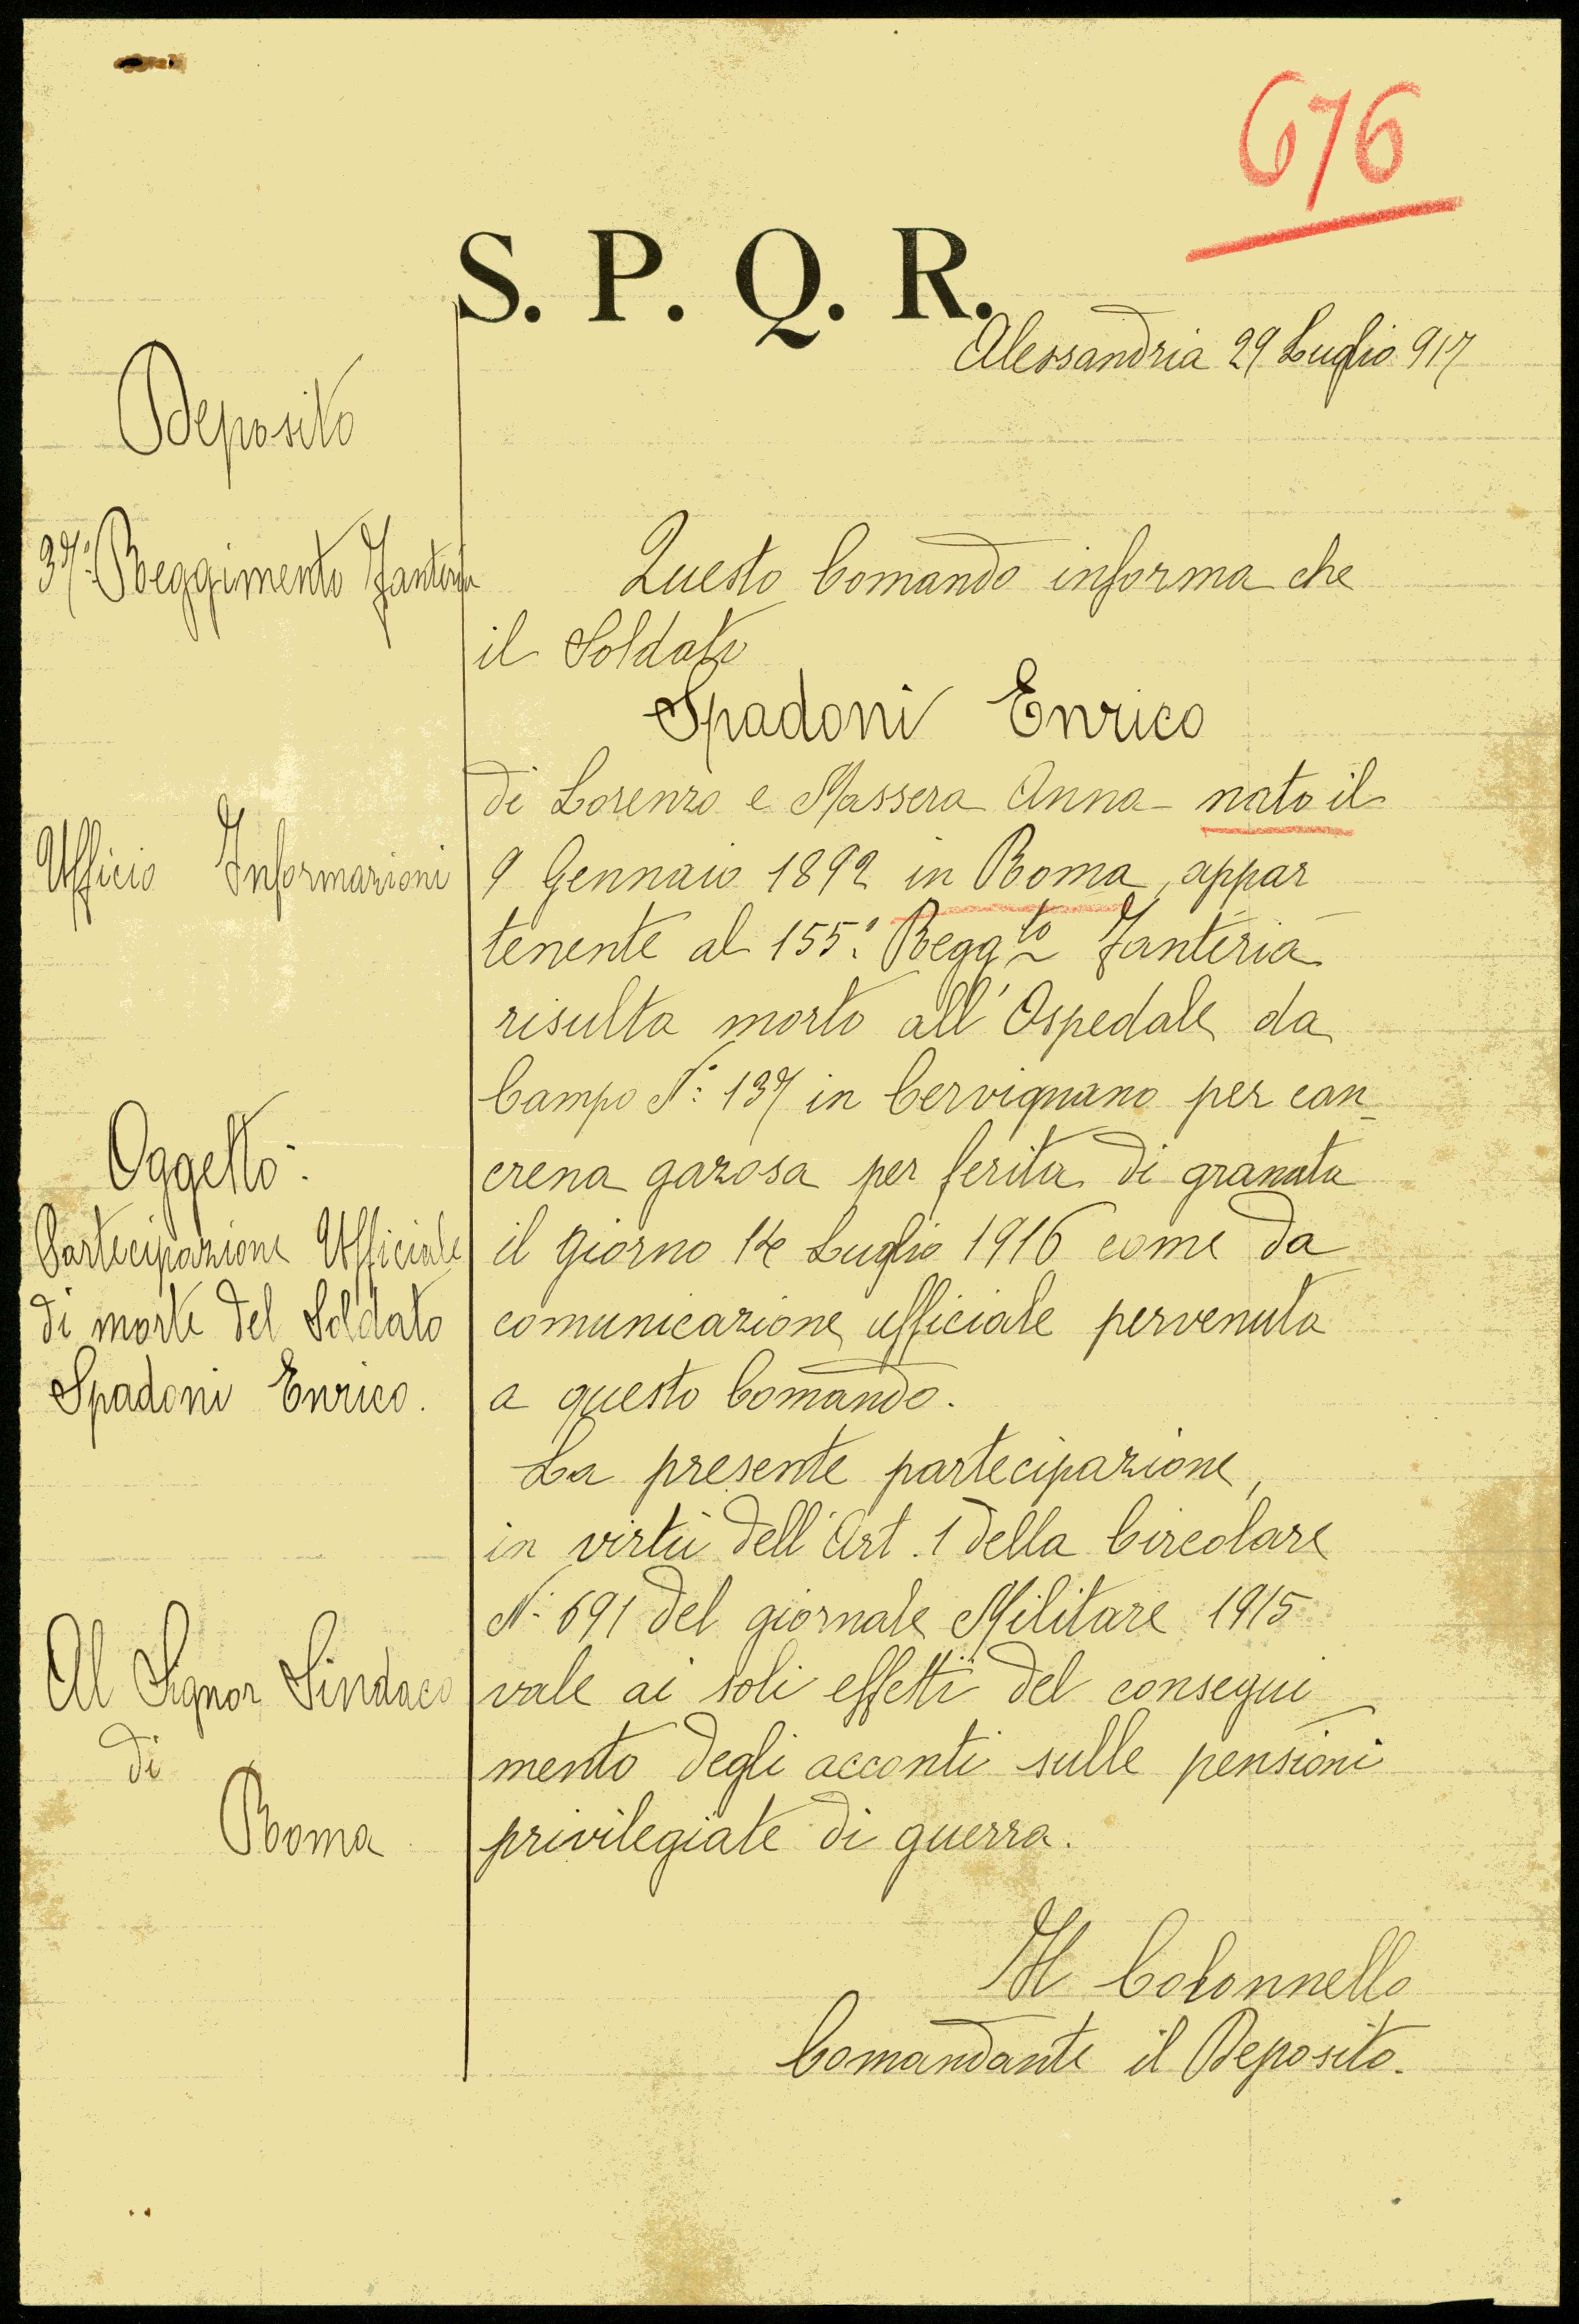 676
S. P. Q. R.
Alessandria 29 Luglio 917
Deposito
37° Reggimento Fanteria
Ufficio Informazioni
Oggetto:
Partecipazione Ufficiale
di morte del Soldato
Spadoni Enrico.
Al Signor Sindaco
di
Roma
Questo Comando informa che
il Soldato
Spadoni Enrico
di Lorenzo e Massera Anna - nato il
9 Gennaio 1892 in Roma, appar
tenente al 155° Regg.to Fanteria
risulta morto all'Ospedale da
Campo N° 137 in Cervignano per can_
crena gazosa per ferita di granata
il giorno Luglio 1916 come da
comunicazione ufficiale pervenuta
a questo Comando.
La presente partecipazione,
in virtù dell'Art. 1 della Circolare
N. 691 del giornale Militare 1915
vale ai soli effetti del consegui_
mento degli acconti sulle pensioni
privilegiate di guerra.
Il Colonnello
Comandante il Deposito.